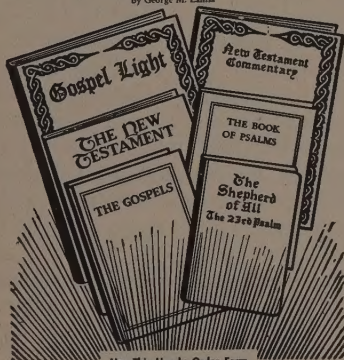 by George M. Lamsa
Gospel Light
THE NEW
TESTAMENT
THE GOSPELS
New Testament
Commentary
THE BOOK
OF PSALMS
The
Shepherd
of All
The 23rd Psalm
Use This Handy Order Form